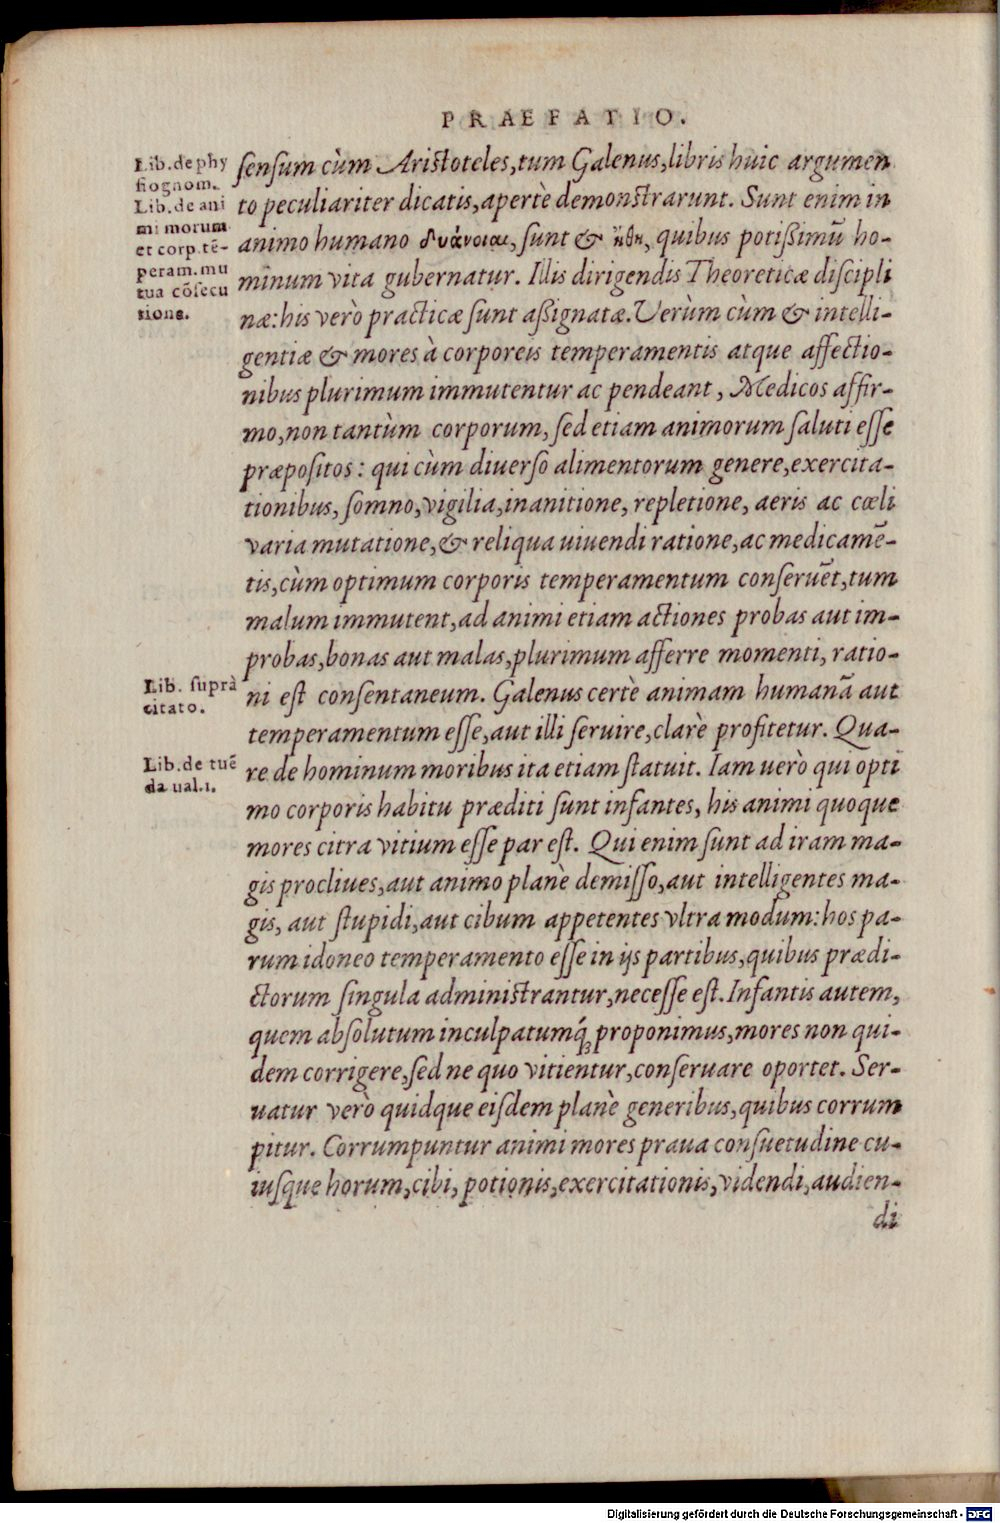 PRAEFATIO.
Lib. de phy
siognom.
Lib. de ani
mi morum
et corp. tē-
peram. mu
tua cōsecu
tione.
sensum cùm Aristoteles, tum Galenus, libris huic argumen
to peculiariter dicatis, apertè demonstrarunt. Sunt enim in
animo humano δυάνοιαι, sunt & ἤθη, quibus potißimū ho-
minum vita gubernatur. Illis dirigendis Theoreticæ discipli
næ: his verò practicæ sunt aßignatæ. Verùm cùm & intelli-
gentiæ & mores à corporeis temperamentis atque affectio-
nibus plurimum immutentur ac pendeant, Medicos affir-
mo, non tantùm corporum, sed etiam animorum saluti esse
præpositos: qui cùm diuerso alimentorum genere, exercita-
tionibus, somno, vigilia, inanitione, repletione, aeris ac cœli
varia mutatione, & reliqua uiuendi ratione, ac medicamē-
tis, cùm optimum corporis temperamentum conseruēt, tum
malum immutent, ad animi etiam actiones probas aut im-
probas, bonas aut malas, plurimum afferre momenti, ratio-
Lib. suprà
citato.
ni est consentaneum. Galenus certè animam humanā aut
temperamentum esse, aut illi seruire, clarè profitetur. Qua-
Lib. de tuē
da ual. 1.
re de hominum moribus ita etiam statuit. Iam uerò qui opti
mo corporis habitu præditi sunt infantes, his animi quoque
mores citra vitium esse par est. Qui enim sunt ad iram ma-
gis procliues, aut animo planè demisso, aut intelligentes ma-
gis, aut stupidi, aut cibum appetentes vltra modum: hos pa-
rum idoneo temperamento esse in ijs partibus, quibus prædi-
ctorum singula administrantur, necesse est. Infantis autem,
quem absolutum inculpatumq́; proponimus, mores non qui-
dem corrigere, sed ne quo vitientur, conseruare oportet. Ser-
uatur verò quidque eisdem planè generibus, quibus corrum
pitur. Corrumpuntur animi mores praua consuetudine cu-
iusque horum, cibi, potionis, exercitationis, videndi, audien-
di
Digitalisierung gefördert durch die Deutsche Forschungsgemeinschaft - DFG